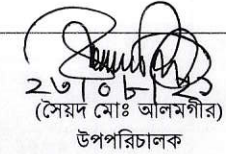 ২৬/০৮/২১
(সৈয়দ মোঃ আলমগীর)
উপপরিচালক